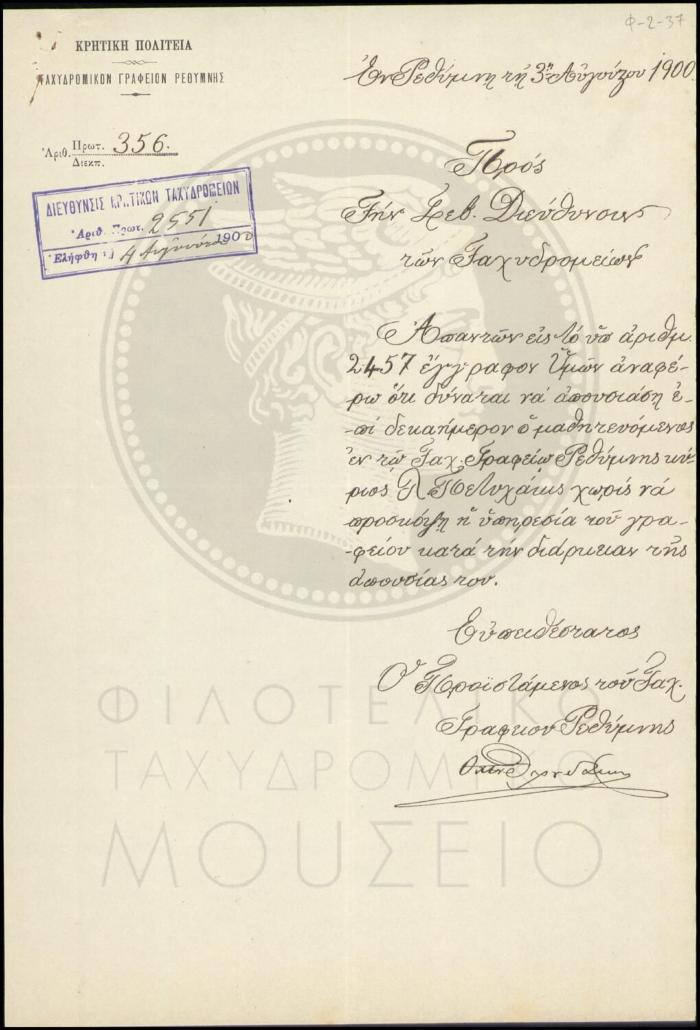 Φ-2-37
ΚΡΗΤΙΚΗ ΠΟΛΙΤΕΙΑ
ΤΑΧΥΔΡΟΜΙΚΟΝ ΓΡΑΦΕΙΟΝ ΡΕΘΥΜΝΗΣ
Ἐν Ρεθύμνῃ τῇ 3ῃ Αὐγούστου 1900
Ἀριθ. Πρωτ. 356.
Διεκπ.
ΔΙΕΥΘΥΝΣΙΣ ΚΡΗΤΙΚΩΝ ΤΑΧΥΔΡΟΜΕΙΩΝ
Ἀριθ. Πρωτ. 2551
Ἐλήφθη τῇ 4 Αὐγούστου 1900
Πρὸς
Τὴν Σεβ. Διεύθυνσιν
τῶν Ταχυδρομείων
Ἀπαντῶν εἰς τὸ ὑπ' ἀριθμ.
2457 ἔγγραφον Ὑμῶν ἀναφέ-
ρω ὅτι δύναται νὰ ἀπουσιάσῃ ἐ-
-πὶ δεκαήμερον ὁ μαθητευόμενος
ἐν τῷ Ταχ. Γραφείῳ Ρεθύμνης κύ-
ριος Πετυχάκις χωρὶς νὰ
προσκόψῃ ἡ ὑπηρεσία τοῦ γρα-
-φείου κατὰ τὴν διάρκειαν τῆς
ἀπουσίας του.
Εὐπειθέστατος
Ὁ Προϊστάμενος τοῦ Ταχ.
Γραφείου Ρεθύμνης
ΦΙΛΟΤΕΛΙΚΟ
ΤΑΧΥΔΡΟΜΙΚΟ
ΜΟΥΣΕΙΟ